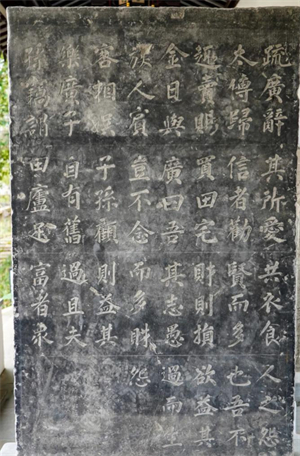 疏廣辭
太傅歸
趣賣賜
金日與
族人賓
客相娛
樂廣子
孫竊謂
其所愛
信者勸
買田宅
廣曰吾
豈不念
子孫顧
自有舊
田廬足
共衣食
賢而多
財則損
其志愚
而多財
則益其
過且夫
富者衆
人之怨
也吾不
欲益其
過而生
怨